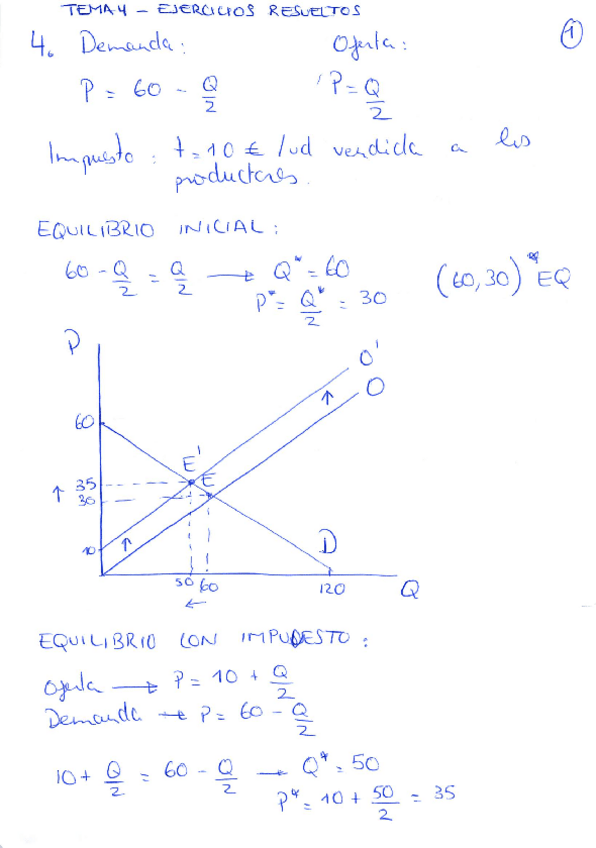 TEMA 4 - EJERCICIOS RESUELTOS
1
4. Demanda: Oferta:
P = 60 - Q/2 P = Q/2
Impuesto: t = 10 € /ud vendida a los
productores.
EQUILIBRIO INICIAL:
60 - Q/2 = Q/2 → Q* = 60 (60,30)* EQ
P* = Q*/2 = 30
P
O'
↑ O
60
E'
35 E
↑ 30
10 ↑
D
50 60 120 Q
←
EQUILIBRIO CON IMPUESTO:
Oferta → P = 10 + Q/2
Demanda → P = 60 - Q/2
10 + Q/2 = 60 - Q/2 → Q* = 50
P* = 10 + 50/2 = 35